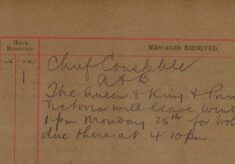 HOUR RECEIVED
MESSAGES RECEIVED.
A.M. P.M.
Chief Constable
1
A & D
The Queen & King &
Victoria will leave
1 pm Monday 25th for
due there at 4 10 pm